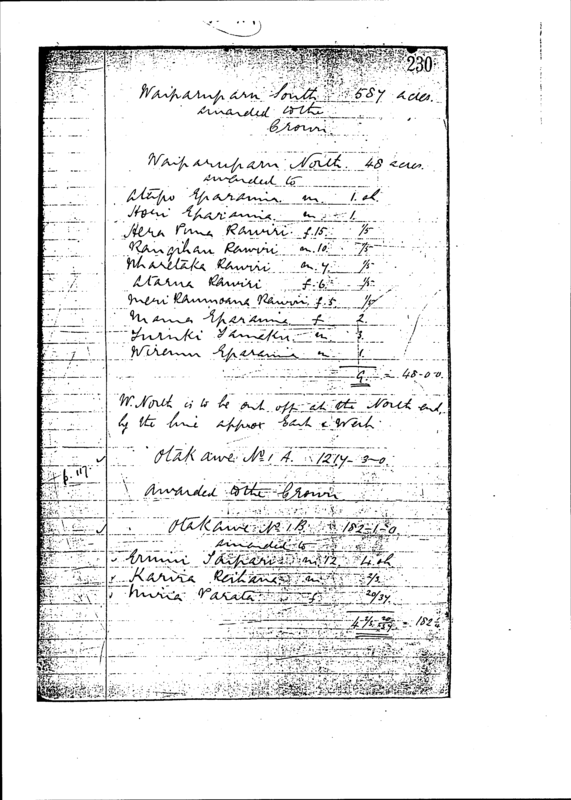 230
Waiparuparu South 587 acres.
awarded to the
Crown
Waiparuparu North. 48 acres.
awarded to
Eparaima m. 1. sh.
Hori Eparaima m 1.
Hera Puna Rawiri f.15. 1/5
Rangihau Rawiri m.10. 1/5
Wharetaka Rawiri m.7. 1/5
Atarua Rawiri f.6. 1/5
Meri Raumoana Rawiri f.5 1/5
Mama Eparaima f 2
Turuki Tamaku m 3
Wiremu Eparaima m 1.
9 = 48-0-0.
W. North is to be cut off at the North end.
by the line approx East & West.
Otakawe No 1 A. 1217-3-0.
p. 117.
Awarded to the Crown
Otakawe No 1B. 182-1-0.
awarded to
Taipari m.12. 4. sh
Karira Reihana m 2/3
Parata f 20/37.
= 182